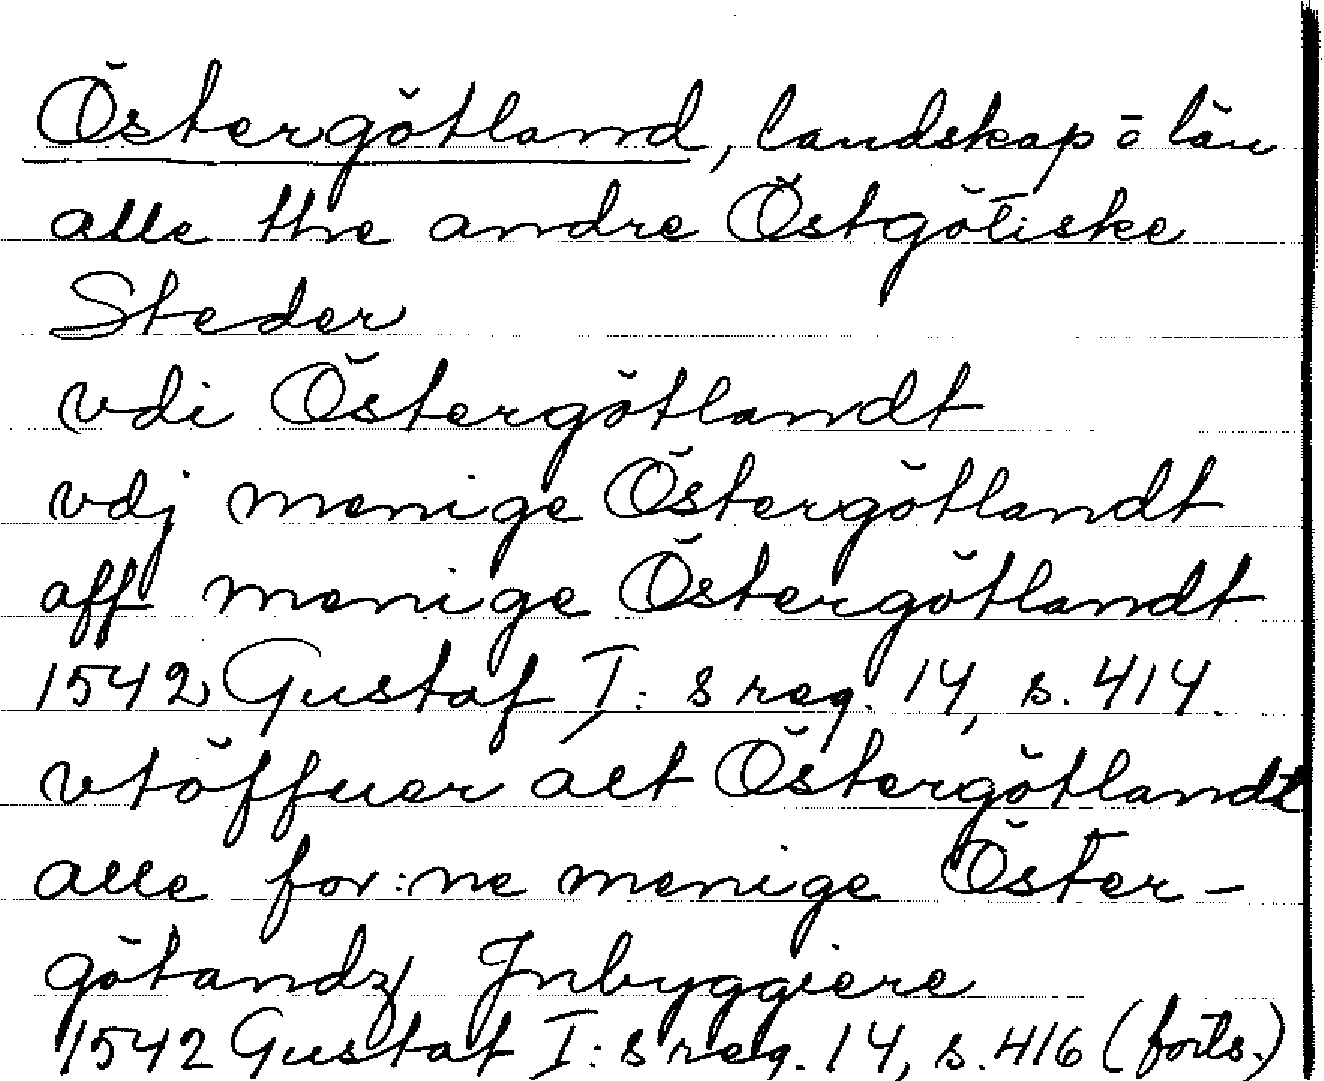 Östergötland, landskap o län
alle the andre Östgötiske
Steder
vdi Östergötlandt
vdj menige Östergötlandt
aff menige Östergötlandt
1542 Gustaf I:s reg. 14, s. 414.
vtöffuer alt Östergötlandt
alle for:ne menige Öster-
götandz Jnbyggiere
1542 Gustaf I:s reg. 14, s. 416 (forts.)